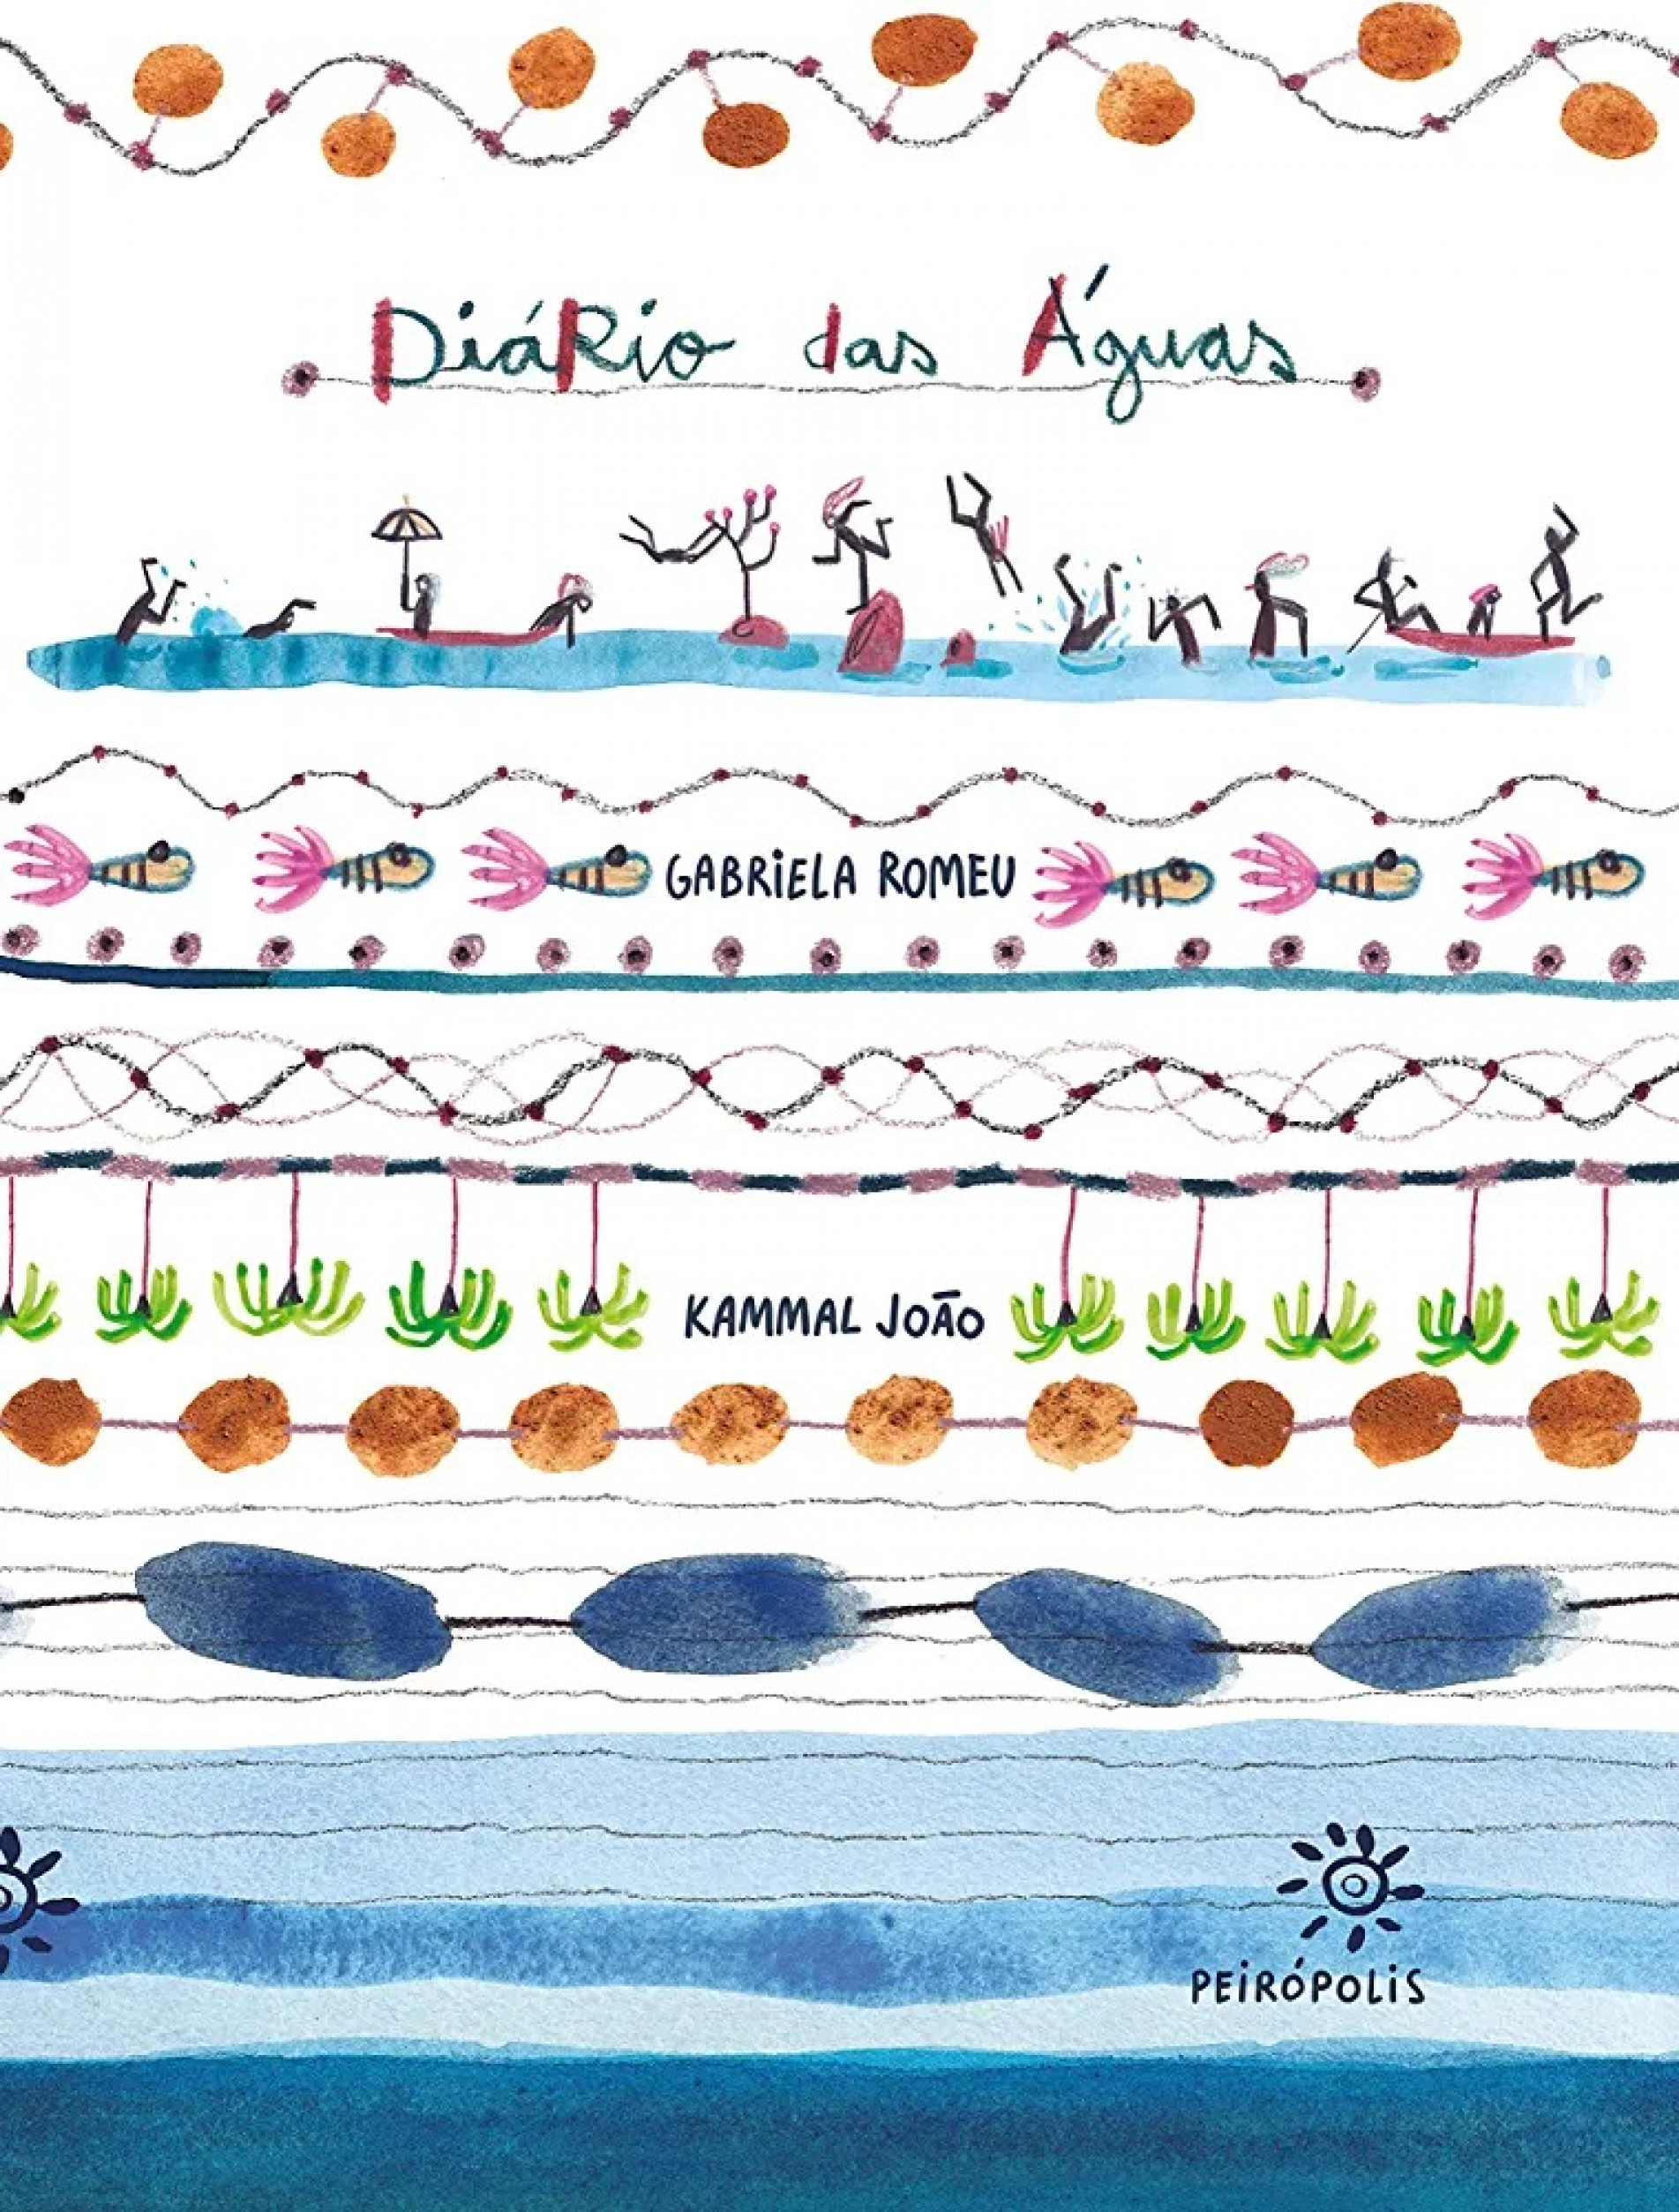 Diário das Águas
GABRIELA ROMEU
KAMMAL JOÃO
PEIRÓPOLIS